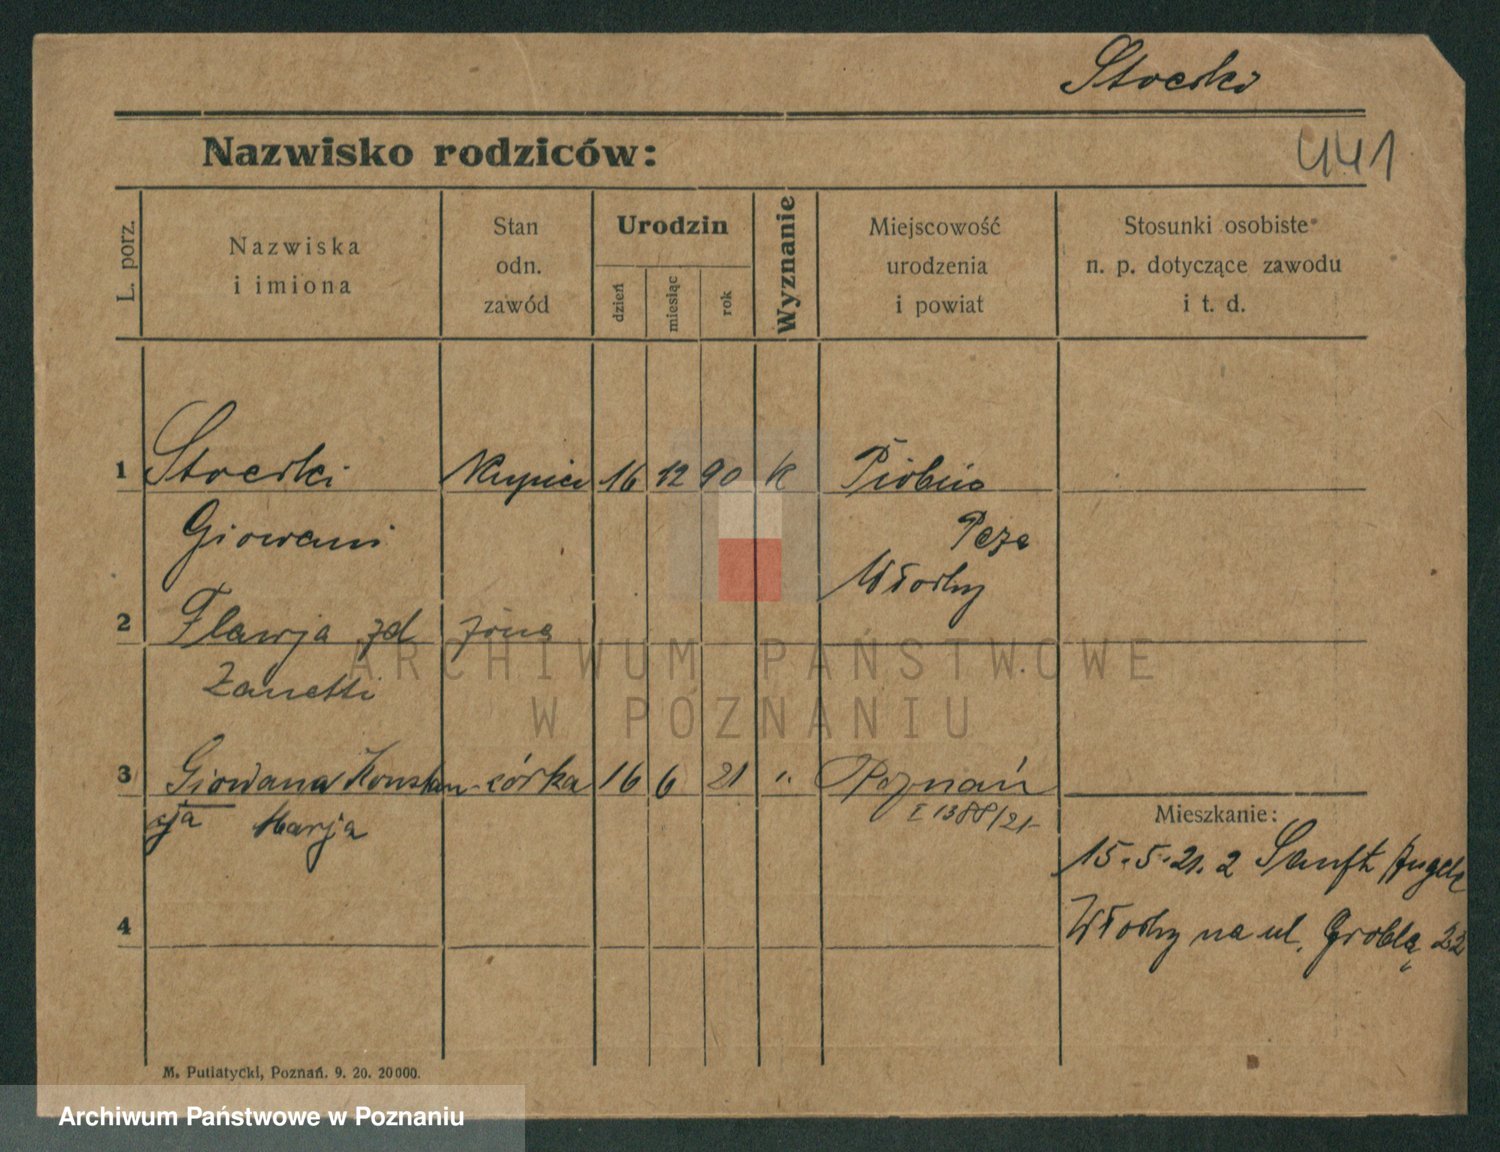 Stoerki
441
Nazwisko rodziców:
L. porz.
Nazwiska
i imiona
Stan
odn.
zawód
Urodzin
dzień
miesiąc
rok
Wyznanie
Miejscowość
urodzenia
i powiat
Stosunki osobiste
n. p. dotyczące zawodu
i t. d.
1 Stoerki kupiec 16 12 90 k
Giowani
Włochy
2 Flawja zd żona
Zanetti
3 Giovana Konstan- córka 16 6 21 ". Poznań
cja Marja
E 1388/21
Mieszkanie:
15.5.21. z
Włochy na ul. Groblą 22
4
M. Putiatycki, Poznań. 9. 20. 20000.
ARCHIWUM PAŃSTWOWE
W POZNANIU
Archiwum Państwowe w Poznaniu